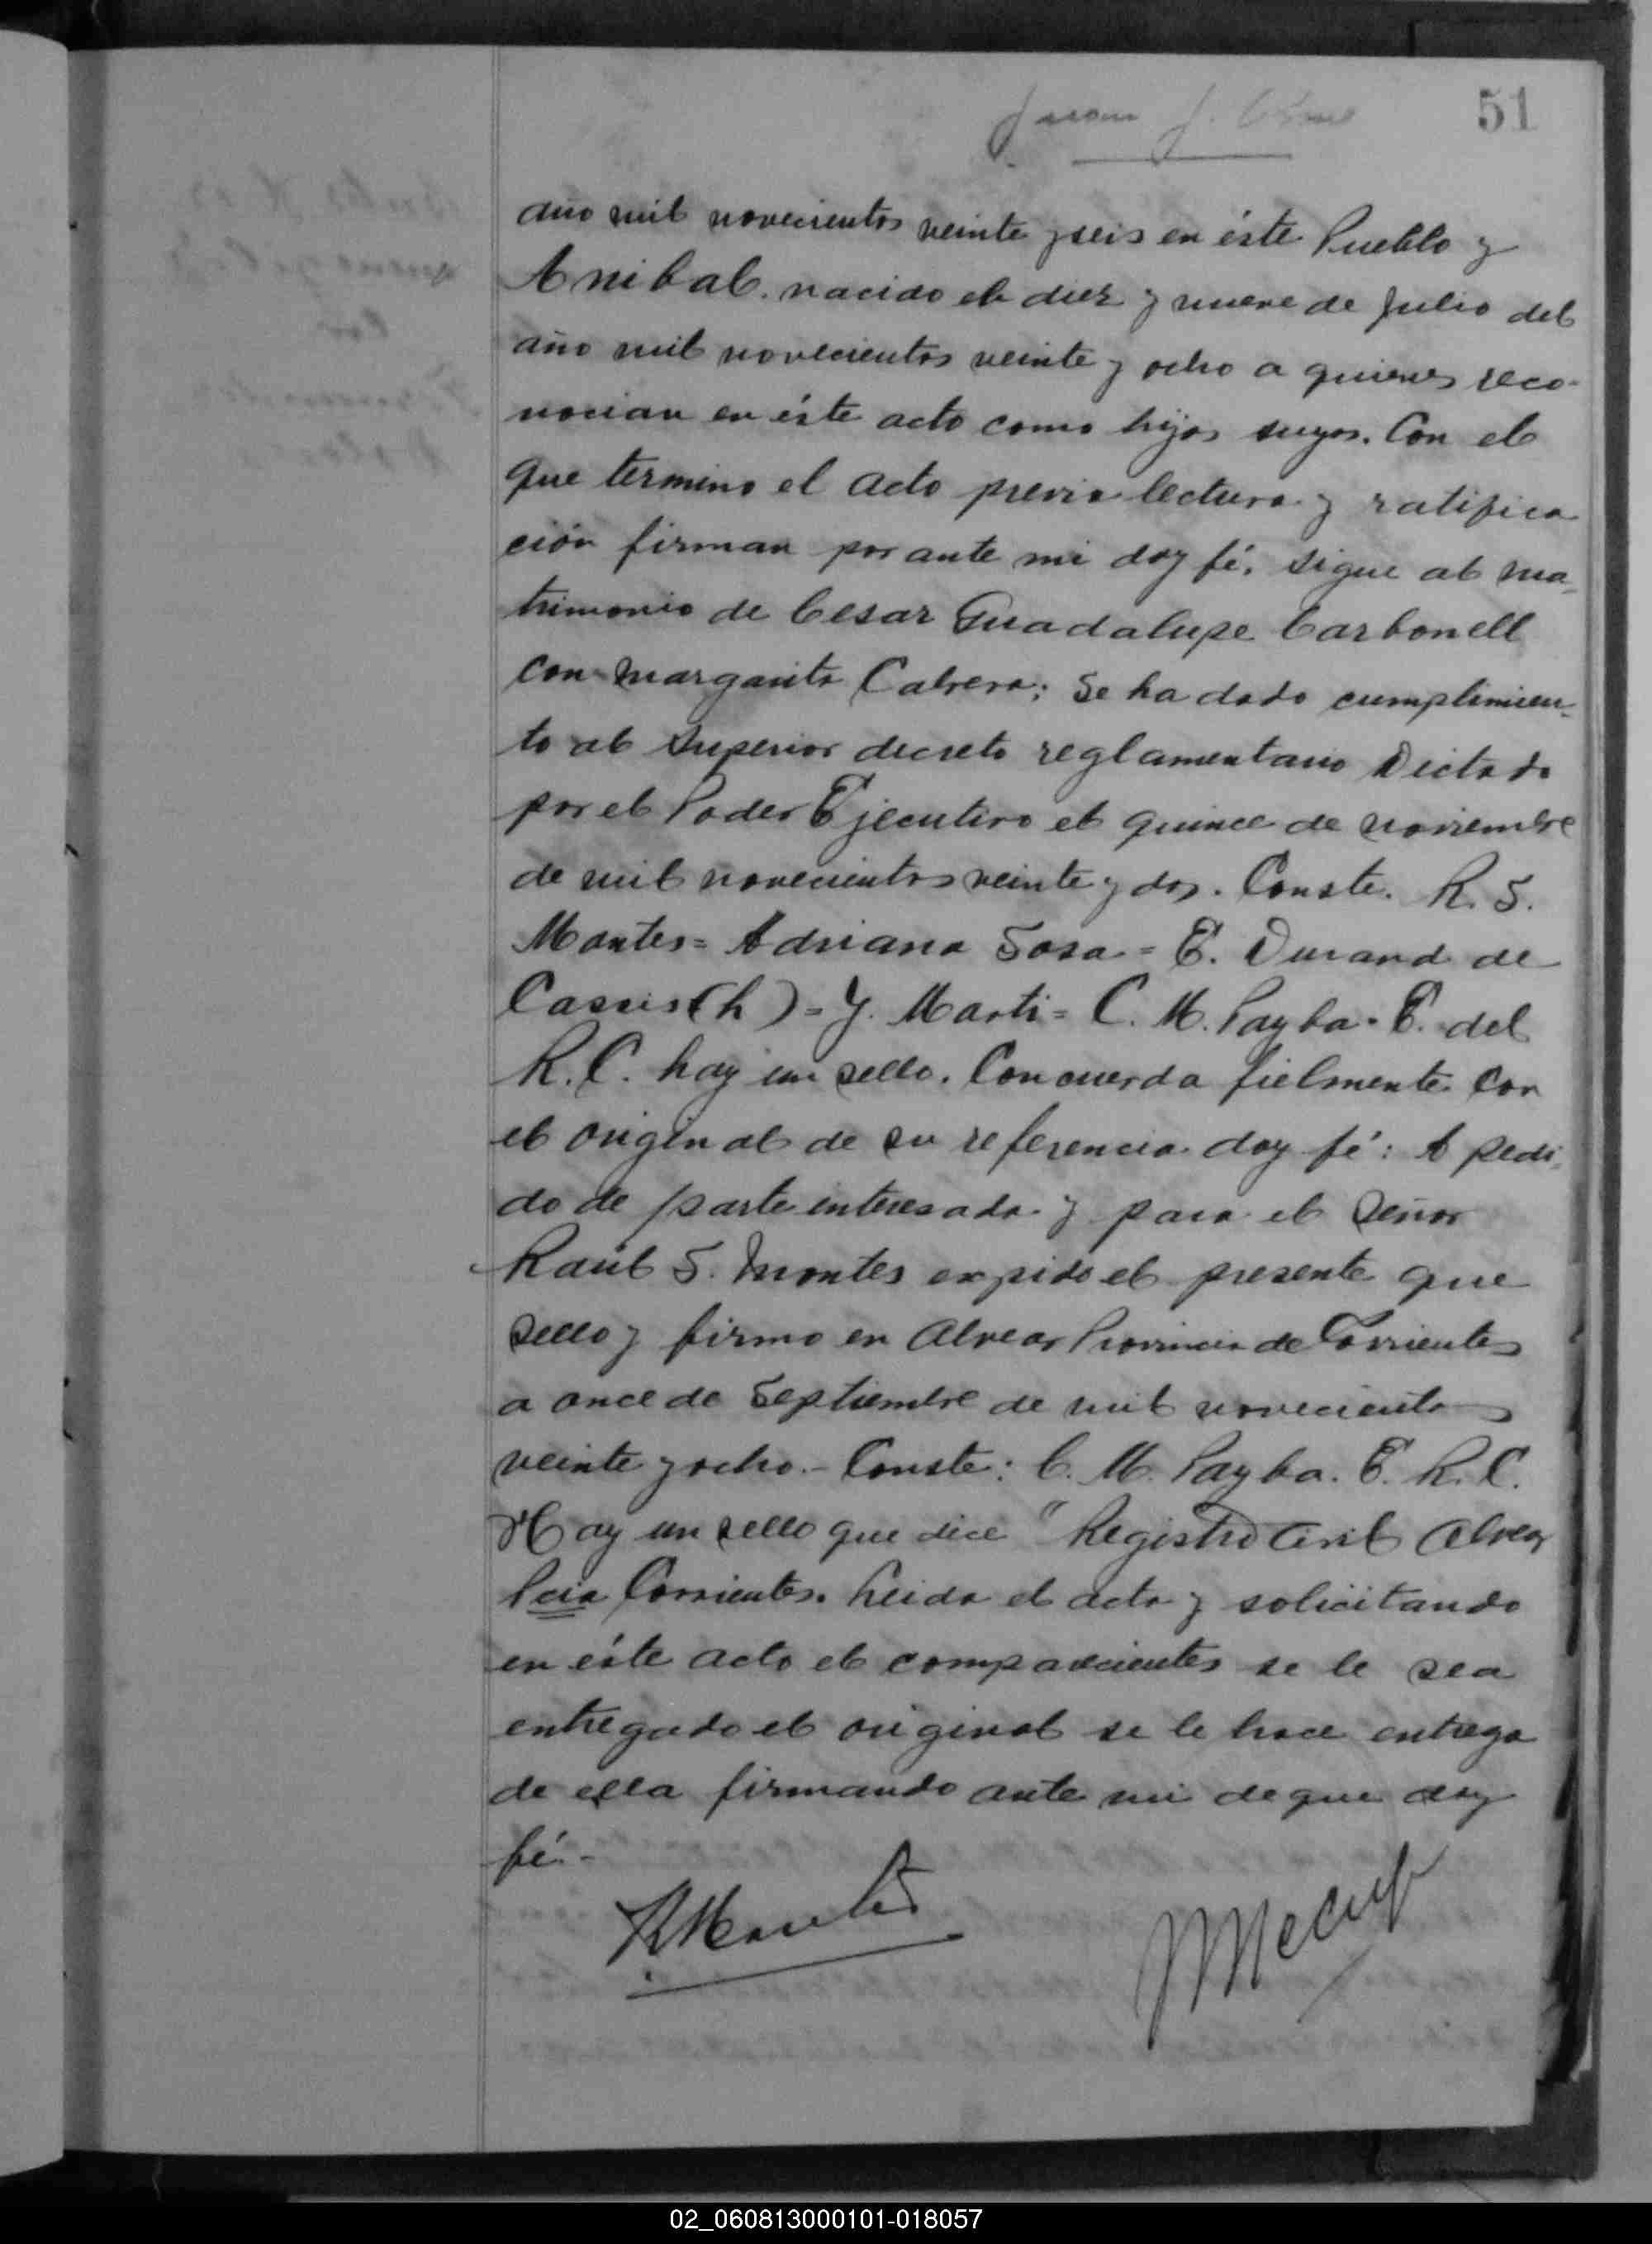 51
año mil novecientos veinte y seis en éste Pueblo y
Anibal. nacido el diez y nueve de Julio del
año mil novecientos veinte y ocho a quienes reco-
nocian en éste acto como hijos suyos. Con el
que termino el acto previa lectura y ratifica
ción firman por ante mi doy fé. sigue al ma-
trimonio de Cesar Guadalupe Carbonell
con Margarita Cabrera; Se ha dado cumplimien-
to al Superior decreto reglamentario Dictado
por el Poder Ejecutivo el quince de noviembre
de mil novecientos veinte y dos. Conste. R. S.
Montes= Adriana Sosa= E. Durand de
Cassis(h)= J. Marti= C. M. Payba. E. del
R. C. hay un sello. Concuerda fielmente con
el original de su referencia doy fé: A pedi-
do de parte interesada y para el Señor
Raúl S. Montes expido el presente que
sello y firmo en Alvear Provincia de Corrientes
a once de Septiembre de mil novecientos
veinte y ocho.- Conste: C. M. Payba. E. R. C.
Hay un sello que dice "Registro Civil Alvear
Pcia Corrientes. Leida el acta y solicitando
en éste acto el comparecientes se le sea
entregado el original se le hace entrega
de ella firmando ante mi de que doy
fé.-
RMontes
02_060813000101-018057